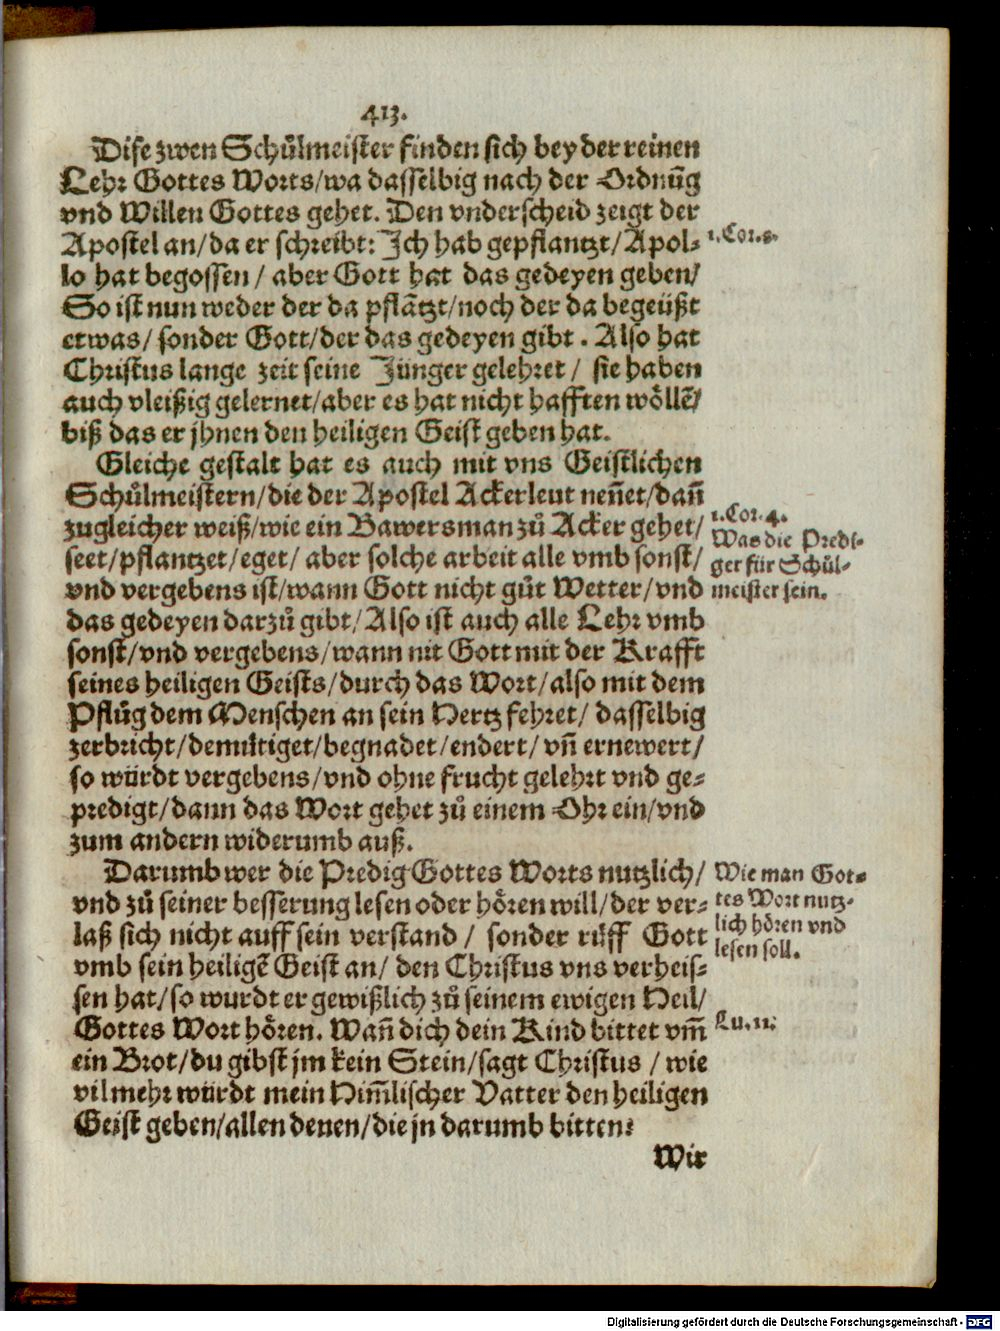 413.
Dise zwen Schůlmeister finden sich bey der reinen
Lehr Gottes Worts/wa dasselbig nach der Ordnũg
vnd Willen Gottes gehet. Den vnderscheid zeigt der
Apostel an/da er schreibt: Ich hab gepflantzt/Apol-
1.Cor.3.
lo hat begossen/ aber Gott hat das gedeyen geben/
So ist nun weder der da pflãtzt/noch der da begeüßt
etwas/ sonder Gott/der das gedeyen gibt. Also hat
Christus lange zeit seine Jünger gelehret/ sie haben
auch vleißig gelernet/aber es hat nicht hafften wöllẽ/
biß das er jhnen den heiligen Geist geben hat.
Gleiche gestalt hat es auch mit vns Geistlichen
Schůlmeistern/die der Apostel Ackerleut neñet/dañ
zugleicher weiß/wie ein Bawersman zů Acker gehet/
seet/pflantzet/eget/ aber solche arbeit alle vmb sonst/
vnd vergebens ist/wann Gott nicht gůt Wetter/vnd
das gedeyen darzů gibt/Also ist auch alle Lehr vmb
1.Cor.4.
Was die Predi-
ger für Schůl-
meister sein.
sonst/vnd vergebens/wann nit Gott mit der Krafft
seines heiligen Geists/durch das Wort/also mit dem
Pflůg dem Menschen an sein Hertz fehret/ dasselbig
zerbricht/demütiget/begnadet/endert/vñ ernewert/
so würdt vergebens/vnd ohne frucht gelehrt vnd ge-
predigt/dann das Wort gehet zů einem Ohr ein/vnd
zum andern widerumb auß.
Darumb wer die Predig Gottes Worts nutzlich/
vnd zů seiner besserung lesen oder hören will/der ver-
laß sich nicht auff sein verstand/ sonder rüff Gott
vmb sein heiligẽ Geist an/ den Christus vns verheis-
Wie man Got-
tes Wort nutz-
lich hören vnd
lesen soll.
sen hat/so wurdt er gewißlich zů seinem ewigen Heil/
Gottes Wort hören. Wañ dich dein Kind bittet vm̃
Lu.11.
ein Brot/du gibst jm kein Stein/sagt Christus/wie
vil mehr würdt mein Him̃lischer Vatter den heiligen
Geist geben/allen denen/die jn darumb bitten.
Wir
Digitalisierung gefördert durch die Deutsche Forschungsgemeinschaft - DFG